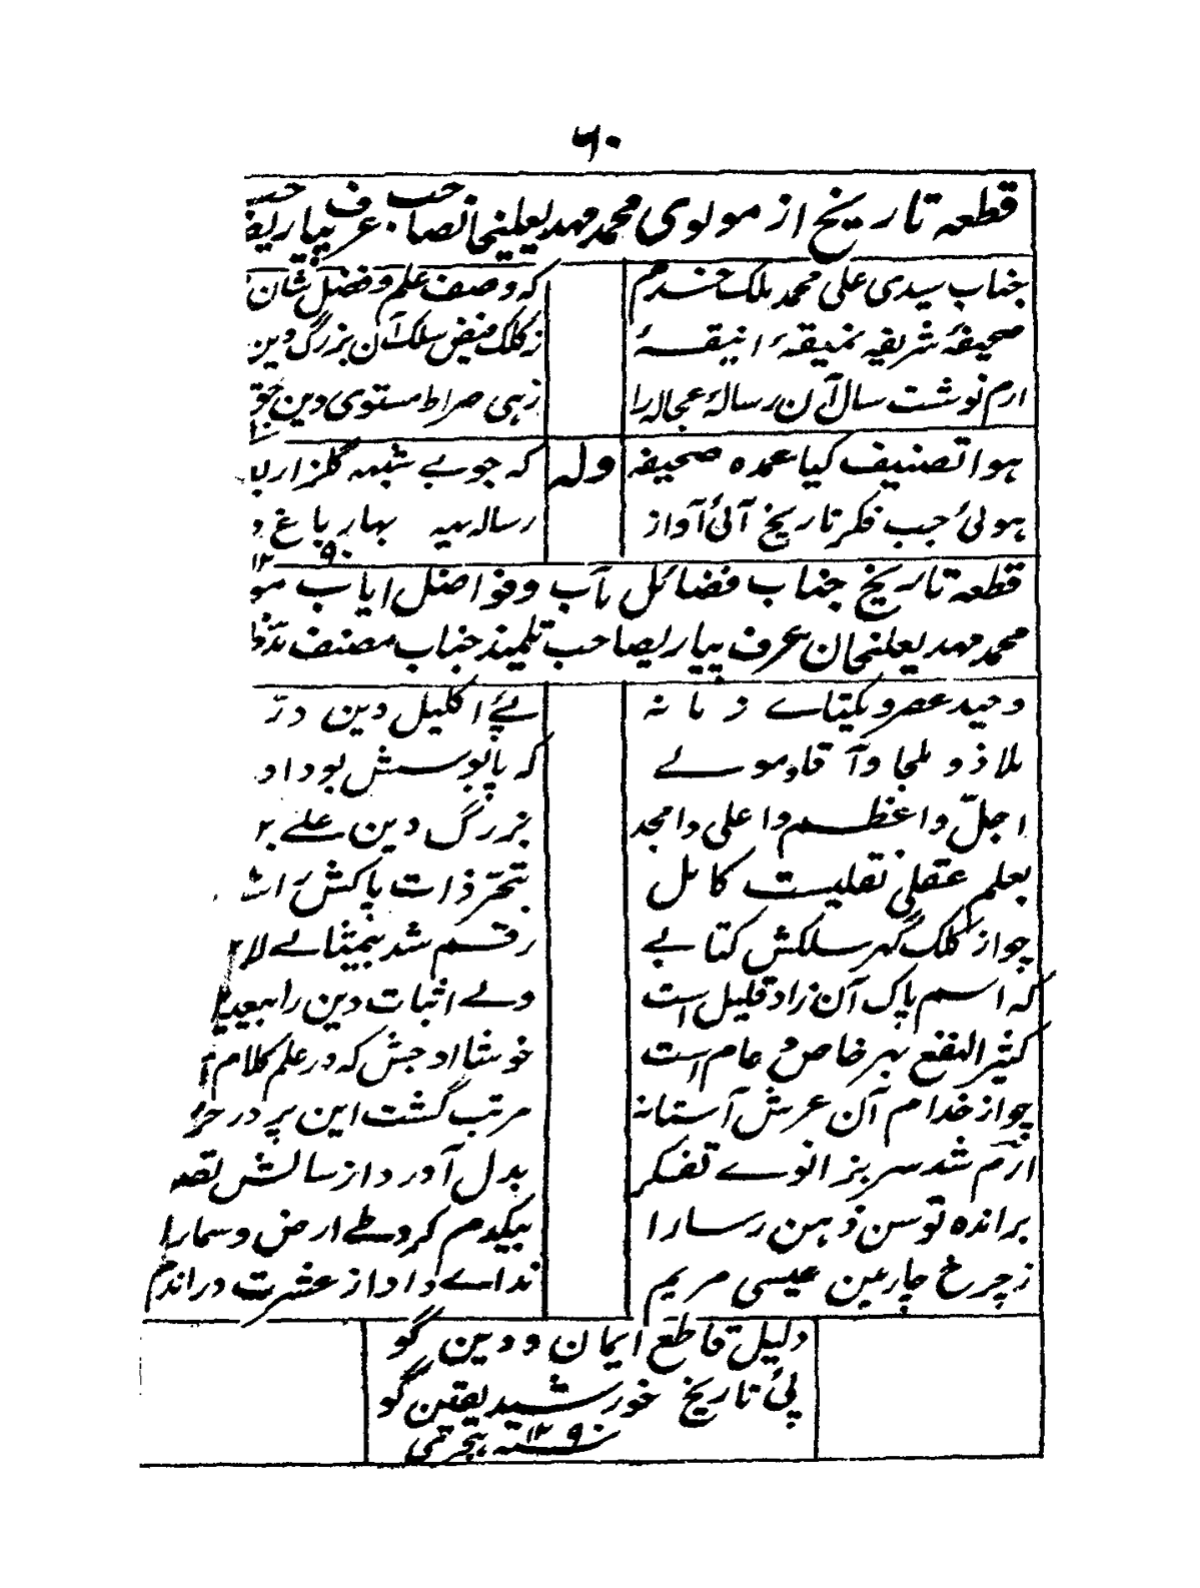 ۶۰
قطعہ تاریخ از مولوی محمد مہدیعلیخانصاحب عرف پیاریصاحب
جناب سیدی علی محمد ملک خدم
کہ وصف علم و فضل شان
صحیفۂ شریفہ نمیقۂ انیقۂ
ز کلک فیض سلک آن بزرگ دین
ارم نوشت سال آن رسالۂ عجالہ را
زہی صراط مستوی دین حق
ہوا تصنیف کیا عمدہ صحیفہ
ولہ
کہ جو بے شبہہ گلزار
ہوئی جب فکر تاریخ آئی آواز
رسالہ ہیہ بہار باغ
۱۲۹۰
قطعہ تاریخ جناب فضائل مآب و فواضل ایاب
محمد مہدیعلنحان عرف پیاریصاحب تلمیذ جناب مصنف
وحید عصر و یکتاے زمانہ
پئے اکلیل دین در
ملاذ و ملجا و آقا و مولے
کہ پابوسش بود
اجلّ و اعظم و اعلی و امجد
بزرگ دین علے
بعلم عقلی نقلیست کامل
تبحر ذات پاکش
چو از کلک گہر سلکش کتابے
رقم شد بیمثالے
کہ اسم پاک آن زاد قلیل است
ولے اثبات دین را
کثیر النفع بہر خاص و عام است
خوشا اوجش کہ در علم کلام
چو از خدام آن عرش آستانہ
مرتب گشت این پر در
ارم شد سر بزانوے تفکر
بدل آورد از سالش
براندہ توسن ذہن رسا را
بیکدم کرد طے ارض و سما را
ز چرخ چارمین عیسی مریم
نداے داد از عشرت دراندم
دلیل قاطع ایمان و دین گو
پئ تاریخ خورشید یقین گو
۱۲۹۰ سنہ ہجری